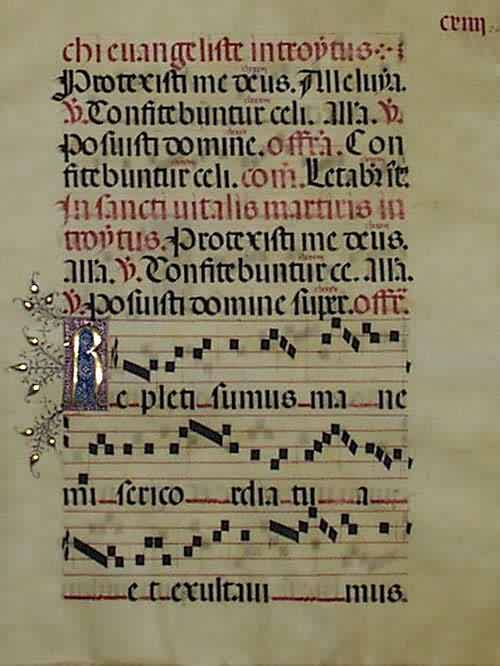 cxiiij
chi euangeliste introytus
Protexisti me deus. Alleluya.
℣. Confitebuntur celi. Alla. ℣.
Posuisti domine. offra. Con
fitebuntur celi. com. Letabr
In sancti uitalis martiris in
troytus. Protexisti me deus.
Alla. ℣. Confitebuntur ce. Alla.
℣. Posuisti domine super. offe.
Re pleti sumus ma ne
mi serico rdia tu a
e t exultaui mus.